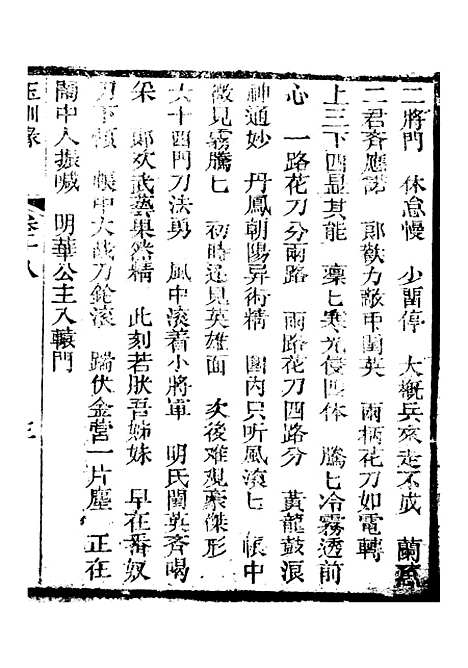 二將門　休怠慢　少畱停　大概兵來走不成　蘭
二君齊應諾　郎歡力敵中閨英　兩柄花刀如電轉
上三下四显其能　凜匕寒光侵四体　騰匕冷霧透前
心　一路花刀分兩路　兩路花刀四路分　黃龍鼓浪
神通妙　丹鳳朝陽异術精　圈內只听風滚匕　帳中
微見霧騰匕　初時还見英雄面　次後难覌豪傑形
六十四門刀法勇　風中滚着小將軍　明氏閨英斉喝
采　郎欢武藝果然精　此刻若肰吾姊妹　早在番奴
刀下傾　帳中大戰刀鎗滚　蹋伏金营一片塵　正在
閙中人振喊　明華公主入轅門
玉釧緣　卷十八　三